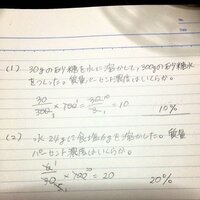 (1) 30gの砂糖を水に溶かして、300gの砂糖水
をつくった。質量パーセント濃度はいくらか。
30/300 × 100 = 10
10%
(2) 水24gに食塩6gを溶かした。質量
パーセント濃度はいくらか。
6/30 × 100 = 20
20%